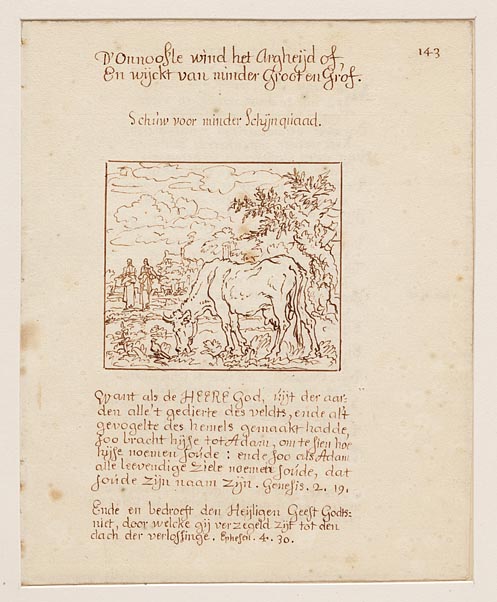 D'Onnoosle wind het Argheijd of,
En wijckt van minder Groot en Grof.
143
Schuw voor minder Schijnquaad.
Want als de HEERE God, uijt der aar-
den alle't gedierte des veldts, ende al't
gevogelte des hemels gemaakt hadde,
soo bracht hijse tot Adam, om te sien hoe
hijse noemen soude: ende soo als Adam
alle leevendige ziele noemen soude, dat
soude zijn naam zijn. Genesis. 2. 19.
Ende en bedroeft den Heijligen Geest Godts
niet, door welcke gij verzegeld zijt tot den
dach der verlossinge. Ephesen. 4. 30.